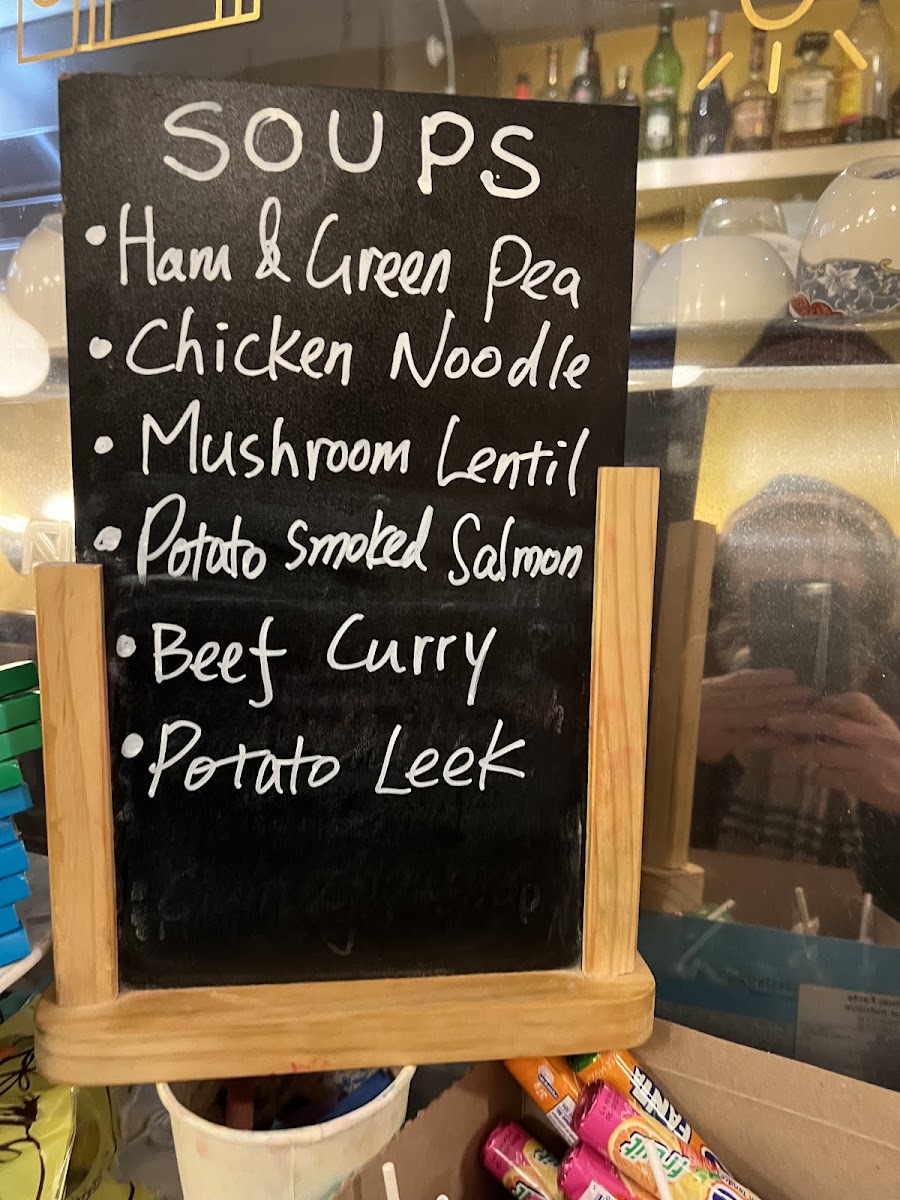 SOUPS
• Ham & Green Pea
• Chicken Noodle
• Mushroom Lentil
• Potato Smoked Salmon
• Beef Curry
• Potato Leek
FANTA
fruit